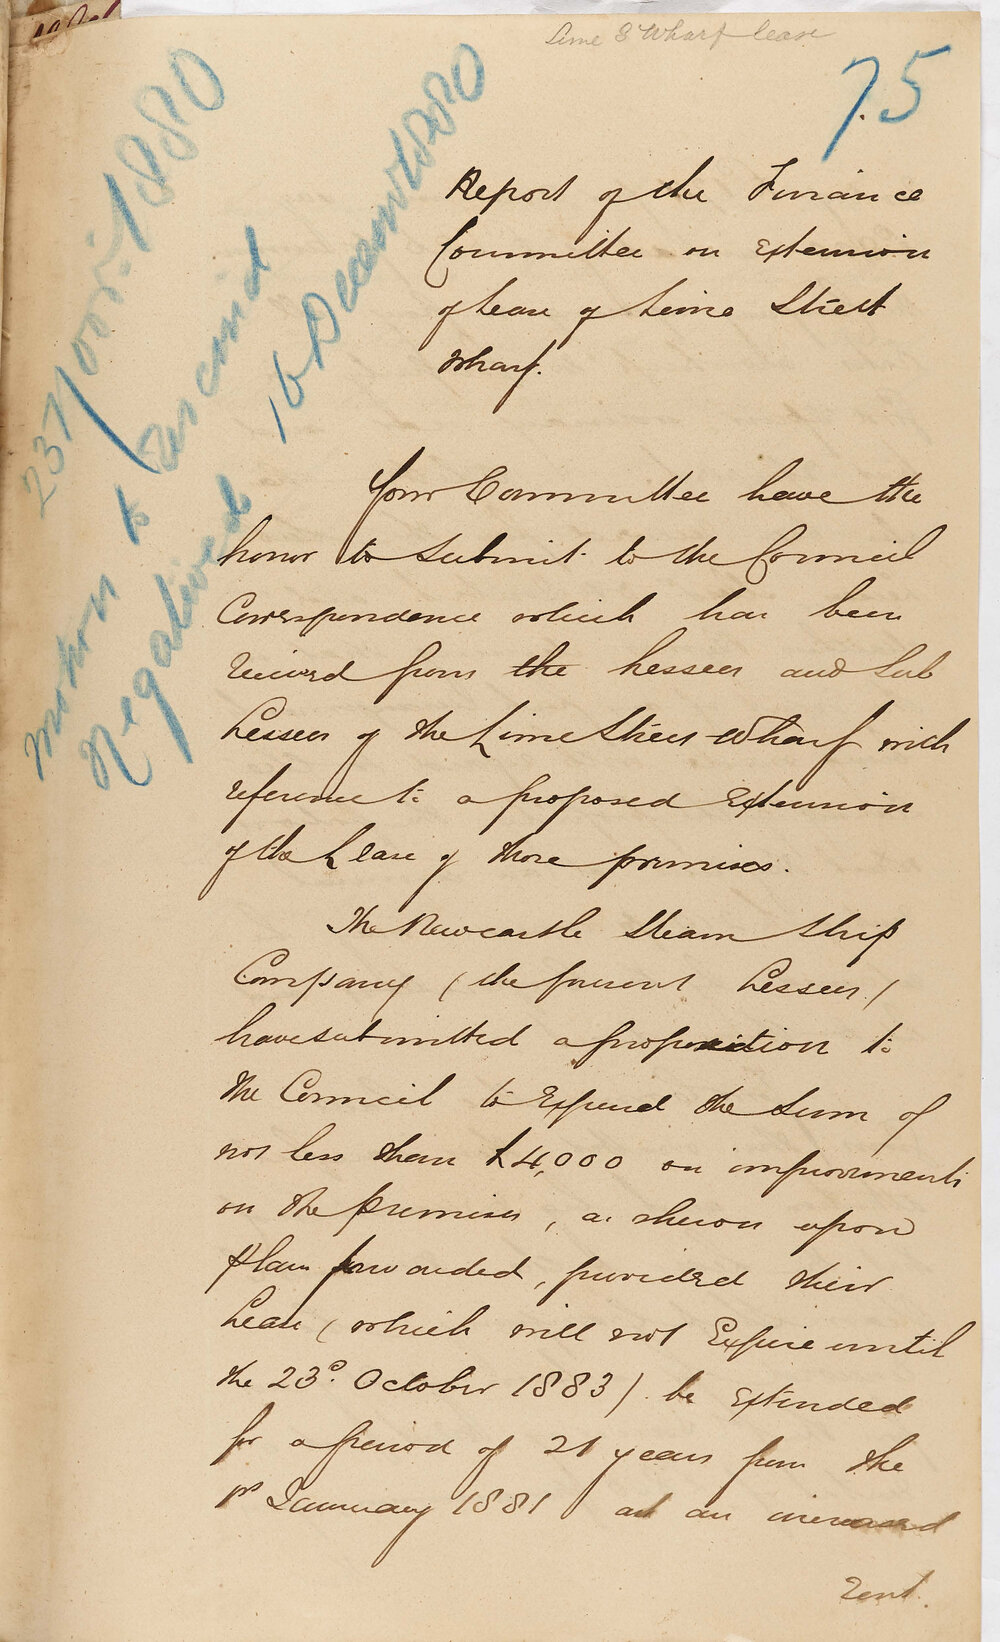 Lime St Wharf lease
75
23 Novr. 1880
motion to rescind
Negatived 16 December 1880
Report of the Finance
Committee on Extension
of lease of Lime Street
Wharf.
Your Committee have the
honor to submit to the Council
Correspondence which has been
received from the Lessees and Sub
Lessees of the Lime Street Wharf with
reference to a proposed Extension
of the Lease of those premises.
The Newcastle Steam Ship
Company (the present Lessees)
have submitted a proposition to
the Council to Expend the sum of
not less than £4,000 on improvements
on the premises, as shewn upon
plan forwarded, provided their
Lease (which will not Expire until
the 23d. October 1883) be Extended
for a period of 21 years from the
1st January 1881 at an increased
rent.